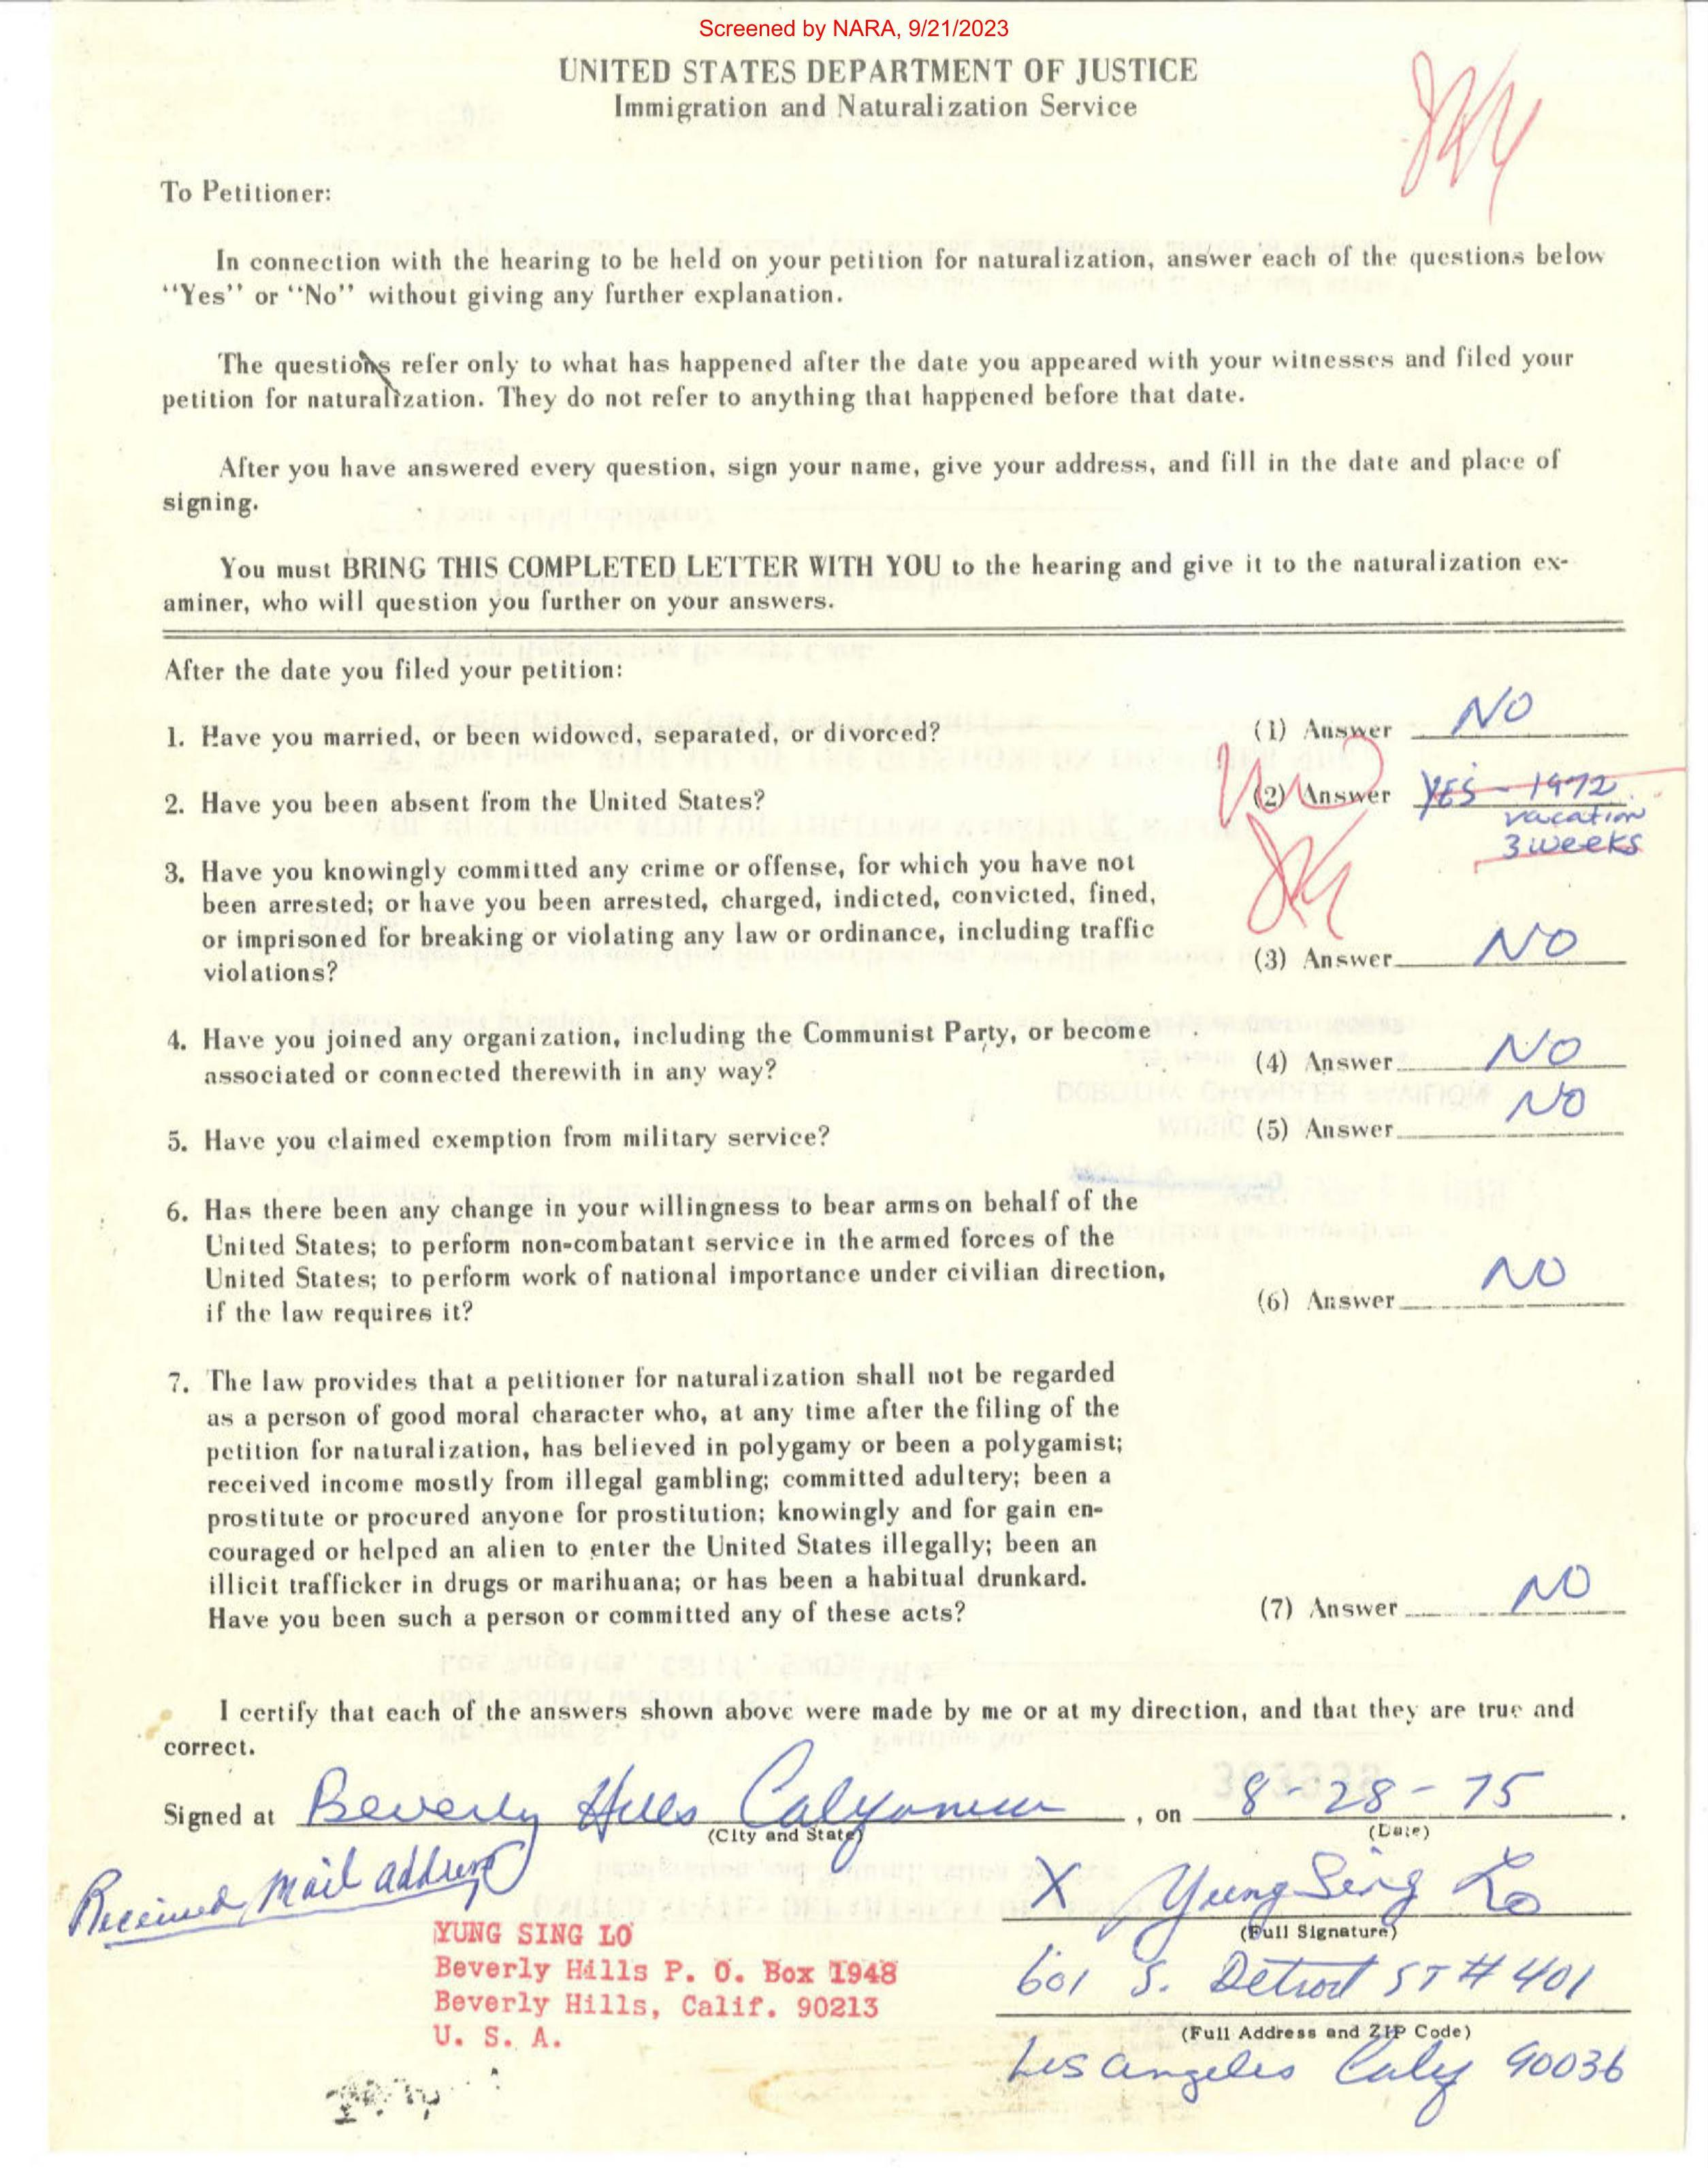 Screened by NARA, 9/21/2023
UNITED STATES DEPARTMENT OF JUSTICE
Immigration and Naturalization Service
To Petitioner:
In connection with the hearing to be held on your petition for naturalization, answer each of the questions below
"Yes" or "No" without giving any further explanation.
The questions refer only to what has happened after the date you appeared with your witnesses and filed your
petition for naturalization. They do not refer to anything that happened before that date.
After you have answered every question, sign your name, give your address, and fill in the date and place of
signing.
You must BRING THIS COMPLETED LETTER WITH YOU to the hearing and give it to the naturalization ex-
aminer, who will question you further on your answers.
After the date you filed your petition:
1. Have you married, or been widowed, separated, or divorced? (1) Answer NO
2. Have you been absent from the United States? (2) Answer YES - 1972
vacation
3 weeks
3. Have you knowingly committed any crime or offense, for which you have not
been arrested; or have you been arrested, charged, indicted, convicted, fined,
or imprisoned for breaking or violating any law or ordinance, including traffic
violations? (3) Answer NO
4. Have you joined any organization, including the Communist Party, or become
associated or connected therewith in any way? (4) Answer NO
5. Have you claimed exemption from military service? (5) Answer NO
6. Has there been any change in your willingness to bear arms on behalf of the
United States; to perform non-combatant service in the armed forces of the
United States; to perform work of national importance under civilian direction,
if the law requires it? (6) Answer NO
7. The law provides that a petitioner for naturalization shall not be regarded
as a person of good moral character who, at any time after the filing of the
petition for naturalization, has believed in polygamy or been a polygamist;
received income mostly from illegal gambling; committed adultery; been a
prostitute or procured anyone for prostitution; knowingly and for gain en-
couraged or helped an alien to enter the United States illegally; been an
illicit trafficker in drugs or marihuana; or has been a habitual drunkard.
Have you been such a person or committed any of these acts? (7) Answer NO
I certify that each of the answers shown above were made by me or at my direction, and that they are true and
correct.
Signed at Beverly Hills California, on 8-28-75.
(City and State) (Date)
Received Mail address
X Yung Sing Lo
(Full Signature)
YUNG SING LO
Beverly Hills P. O. Box 1948
Beverly Hills, Calif. 90213
U. S. A.
601 S. Detroit ST # 401
(Full Address and ZIP Code)
Los Angeles Calif 90036